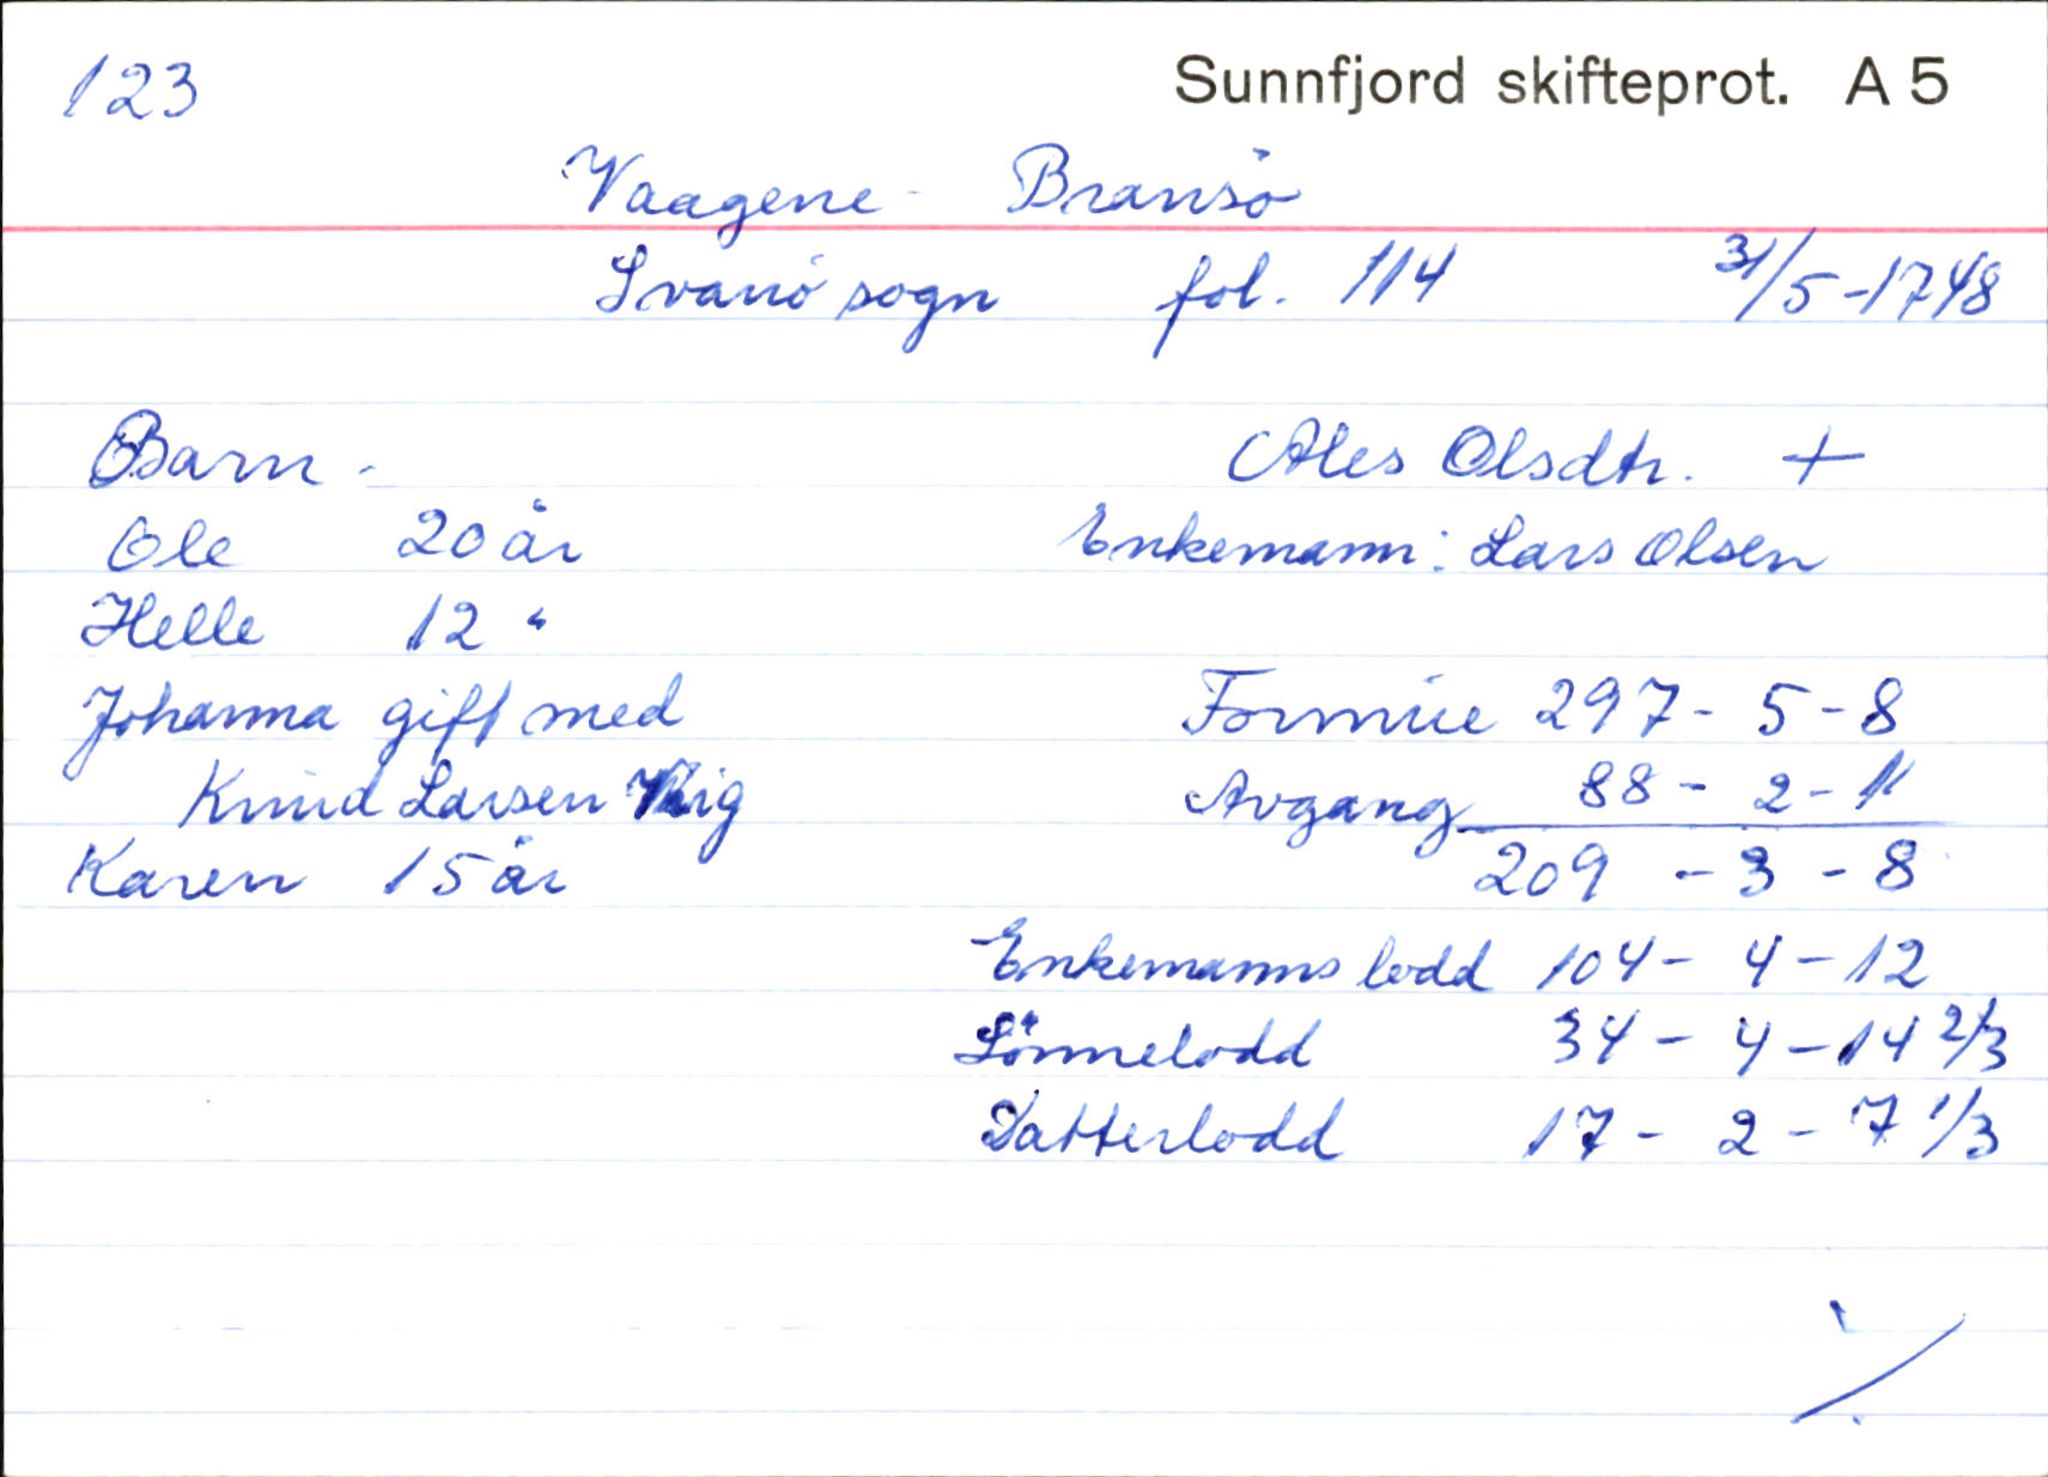 123 Sunnfjord skifteprot. A 5
Vaagene - Bransö
Svanö sogn fol. 114 31/5-1748
Barn - Ales Olsdtr. +
Ole 20 år Enkemann: Lars Olsen
Helle 12 "
Johanna gift med Formue 297 - 5 - 8
Knud Larsen Avgang 88 - 2 - 11
Karen 15 år 209 - 3 - 8
Enkemanns lodd 104 - 4 - 12
Sönnelodd 34 - 4 - 14 2/3
Datterlodd 17 - 2 - 7 1/3